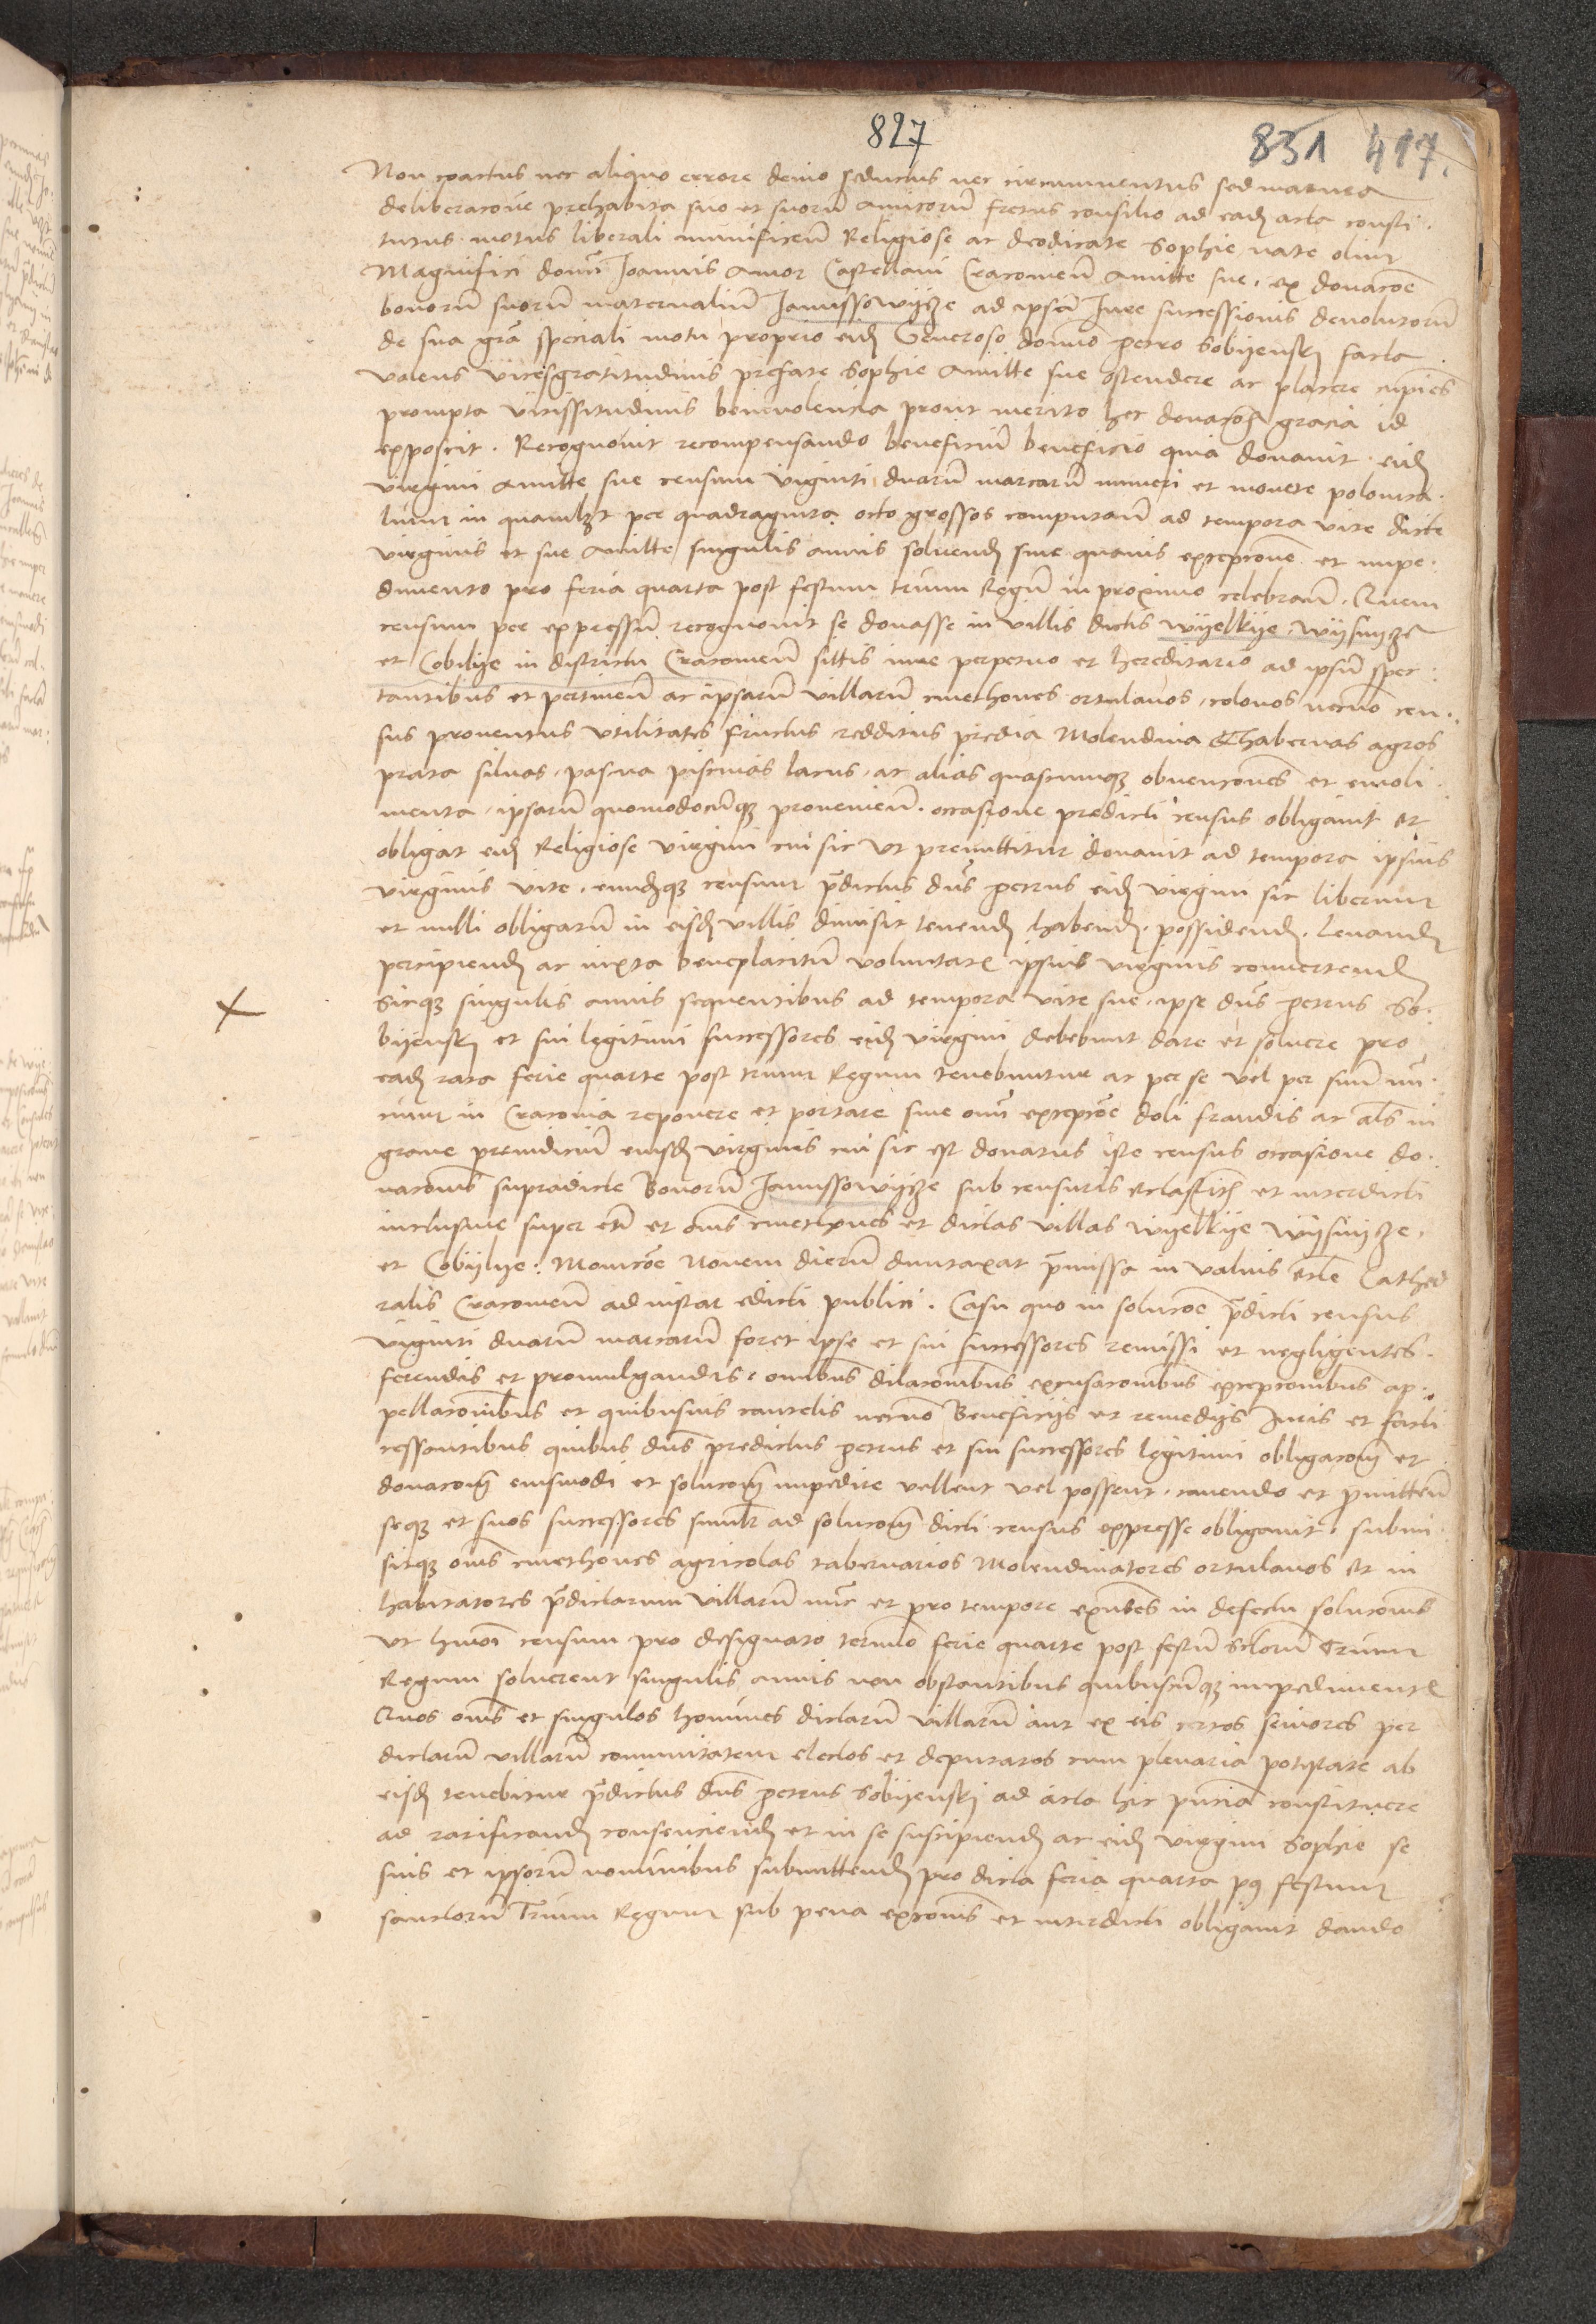 827
831 417.
Non coactus nec aliquo errore devio seductus nec circumventus sed matura
deliberacoe prehabita suo et suorū amicorū fretus consilio ad eadꝫ acta consti.
tutus motus liberali munificen̄ Religiose ac deodicate Sophie nate olim
Magnifici domī Joannis Amor Castellani Cracovien̄ Amitte sue. ex donacōe
bonorū suorū maternaliū Janussowÿcze ad ipsā Jure successionis devolutorū
de sua grā speciali motu proprio eidꝫ Generoso domō petro Sobÿenskÿ facta
volens vices gratitudinis prefate Sophie Amitte sue ostendere ac placere cupiēs
prompta vicissitudinis benevolencia prout merito hec donacōis gracia id
exposcit. Recognovit recompensando beneficiū beneficio quia donavit eidꝫ
virgini Amitte sue censum viginti duarū marcarū numeri et monete polonica.
lium in quamlꝫt per quadraginta octo grossos computan̄ ad tempora vite dicte
virginis et sue Amitte singulis annis solvendꝫ sine quavis excepcone et impe.
dimento pro feria quarta post festum trium Regū in proximo celebran̄. Quem
censum per expressū recognovit se donasse in villis dictis wÿelkÿe wÿsnÿcze
et Cobilÿe in districtu Cracovien̄ sittis iure perpetuo et hereditario ad ipsū spec.
tantibus et pertinen̄ ac ipsarū villarū cmethones ortulanos, colonos necnō cen.
sus proventus utilitates fructus redditus predia Molendina Thabernas agros
prata silvas, pascua piscinas lacus, ac alias quascunqꝫ obvencōnes et emoli.
menta, ipsarū quomodocūqꝫ provenien̄. occasione predicti census obligavit et
obligat eidꝫ Religiose virgini cui sic ut premittitur donavit ad tempora ipsius
virginis vite. eundꝫqꝫ censum p̄dictus dn̄s petrus eidꝫ virgini sic liberum
et nulli obligatū in eisdꝫ villis dimisit tenendꝫ habendꝫ. possidendꝫ. Levandꝫ
percipiendꝫ ac iuxta beneplacitū voluntatꝫ ipsius virginis convertendꝫ
Sicqꝫ singulis annis sequentibus ad tempora vite sue, ipse dn̄s petrus So.
bÿenskÿ et sui legitimi successores eidꝫ virgini debebunt dare et solvere pro
eadꝫ rata ferie quarte post trium Regum tenebuntur ac per se vel per suū nū.
cium in Cracovia reponere et portare sine om̄i excepcōe doli fraudis ac al̄s in
grave preiudiciū eiusdꝫ virginis cui sic est donatus iste census occasione do.
nacōnis supradicte Bonorū Janussowÿcze sub censuris eccl̄asticꝫ et interdicti
inclusive super etī et om̄s cmethones et dictas villas wÿelkÿe wÿsnÿcze.
et Cobÿlÿe. Monicōe Novem dierū duntaxat p̄missa in valvis ecc̄le Cathed
ralis Cracovien̄ ad instar edicti publici. Casu quo in solucōe p̄dicti census
viginti duarū marcarū foret ipse et sui successores remissi et negligentes.
ferendis et promulgandis. omībus dilacōnibus excusacōnibus excepcōnibus ap.
pellacōnibus et quibusvis cautelis necnō Beneficijs et remedijs Juris et facti
cessantibus quibus dn̄s predictus petrus et sui successores legitimi obligacōnꝫ et
donacōnꝫ eiusmodi et solucōnꝫ impedire vellent vel possent. cavendo et p̄mitten̄
seqꝫ et suos successores simlr̄ ad solucōnꝫ dicti census expresse obligavit. submi.
sitqꝫ om̄s cmethones agricolas tabernarios Molendinatores ortulanos et in
habitatores p̄dictarum villarū nūc et pro tempore exn̄tes in defectu solucōnis
ut hm̄oi censum pro designato termīo ferie quarte post festū sctorū Trium
Regum solverent singulis annis non obstantibus quibuscūqꝫ impedimentꝫ
Quos om̄s et singulos homines dictarū villarū aut ex eis certos seniores per
dictarū villarū comunitatem electos et deputatos cum plenaria potestate ab
eisdꝫ tenebitur p̄dictus dn̄s petrus Sobÿenskÿ ad acta hic pn̄cia constituere
ad ratificandꝫ consenciendꝫ et in se suscipiendꝫ ac eidꝫ virgini Sophie se
suis et ipsorū nominibus submittendꝫ pro dicta feria quarta pꝯ festum
sanctorū Trium Regum sub pena excōnis et interdicti obligavit dando